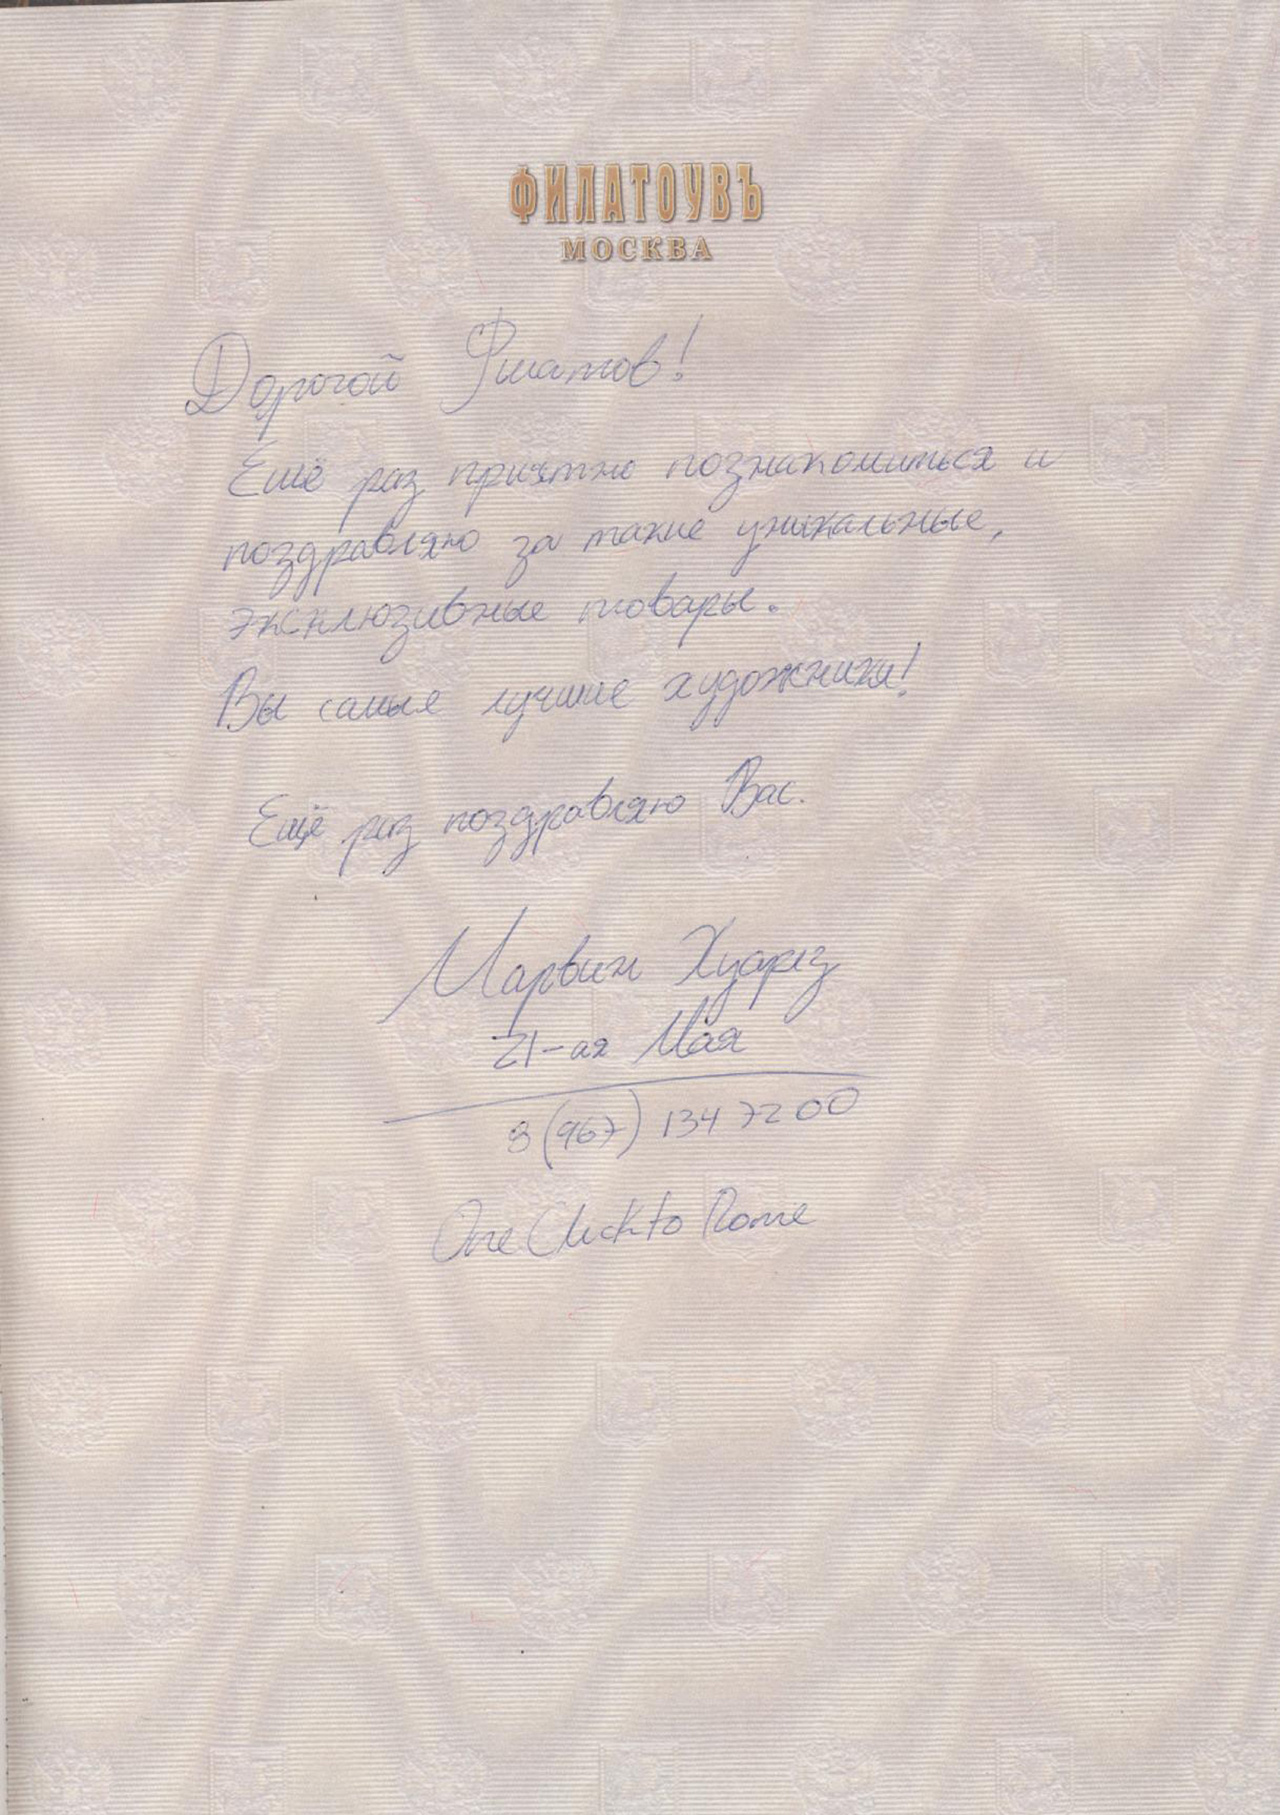 ФИЛАТОУВЪ
МОСКВА
Дорогой Филатов!
Ещё раз приятно познакомиться и
поздравляю за такие уникальные,
эксклюзивные товары.
Вы самые лучшие художники!
Ещё раз поздравляю Вас.
Марвин Хуарез
21-ая Мая
8 (967) 134 72 00
One Click to Rome